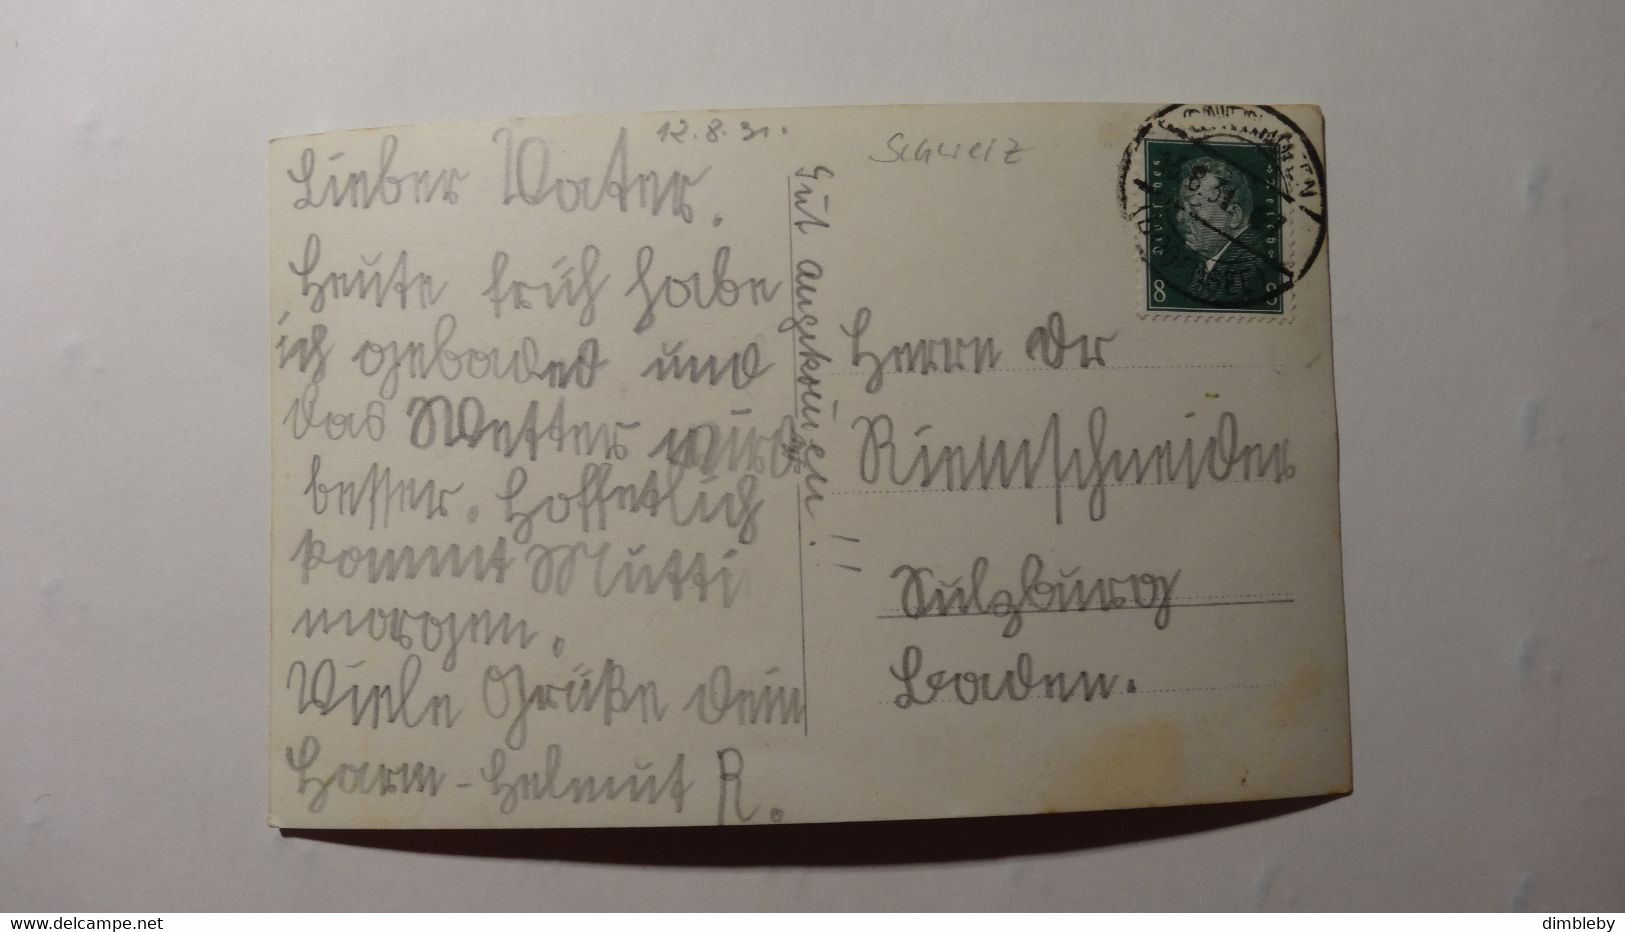 12.8.31.
Lieber Vater.
Heute früh habe
ich gebadet und
das Wetter wird
besser. Hoffetlich
kommt Mutti
morgen.
Viele Grüße Dein
Harm-Helmut R.
Gut angekom̅en!!
Schweiz
Deutsches Reich
8 8
8.31
Herrn Dr
Riemschneider
Sulzburg
Baden.
www.delcampe.net
dimbleby